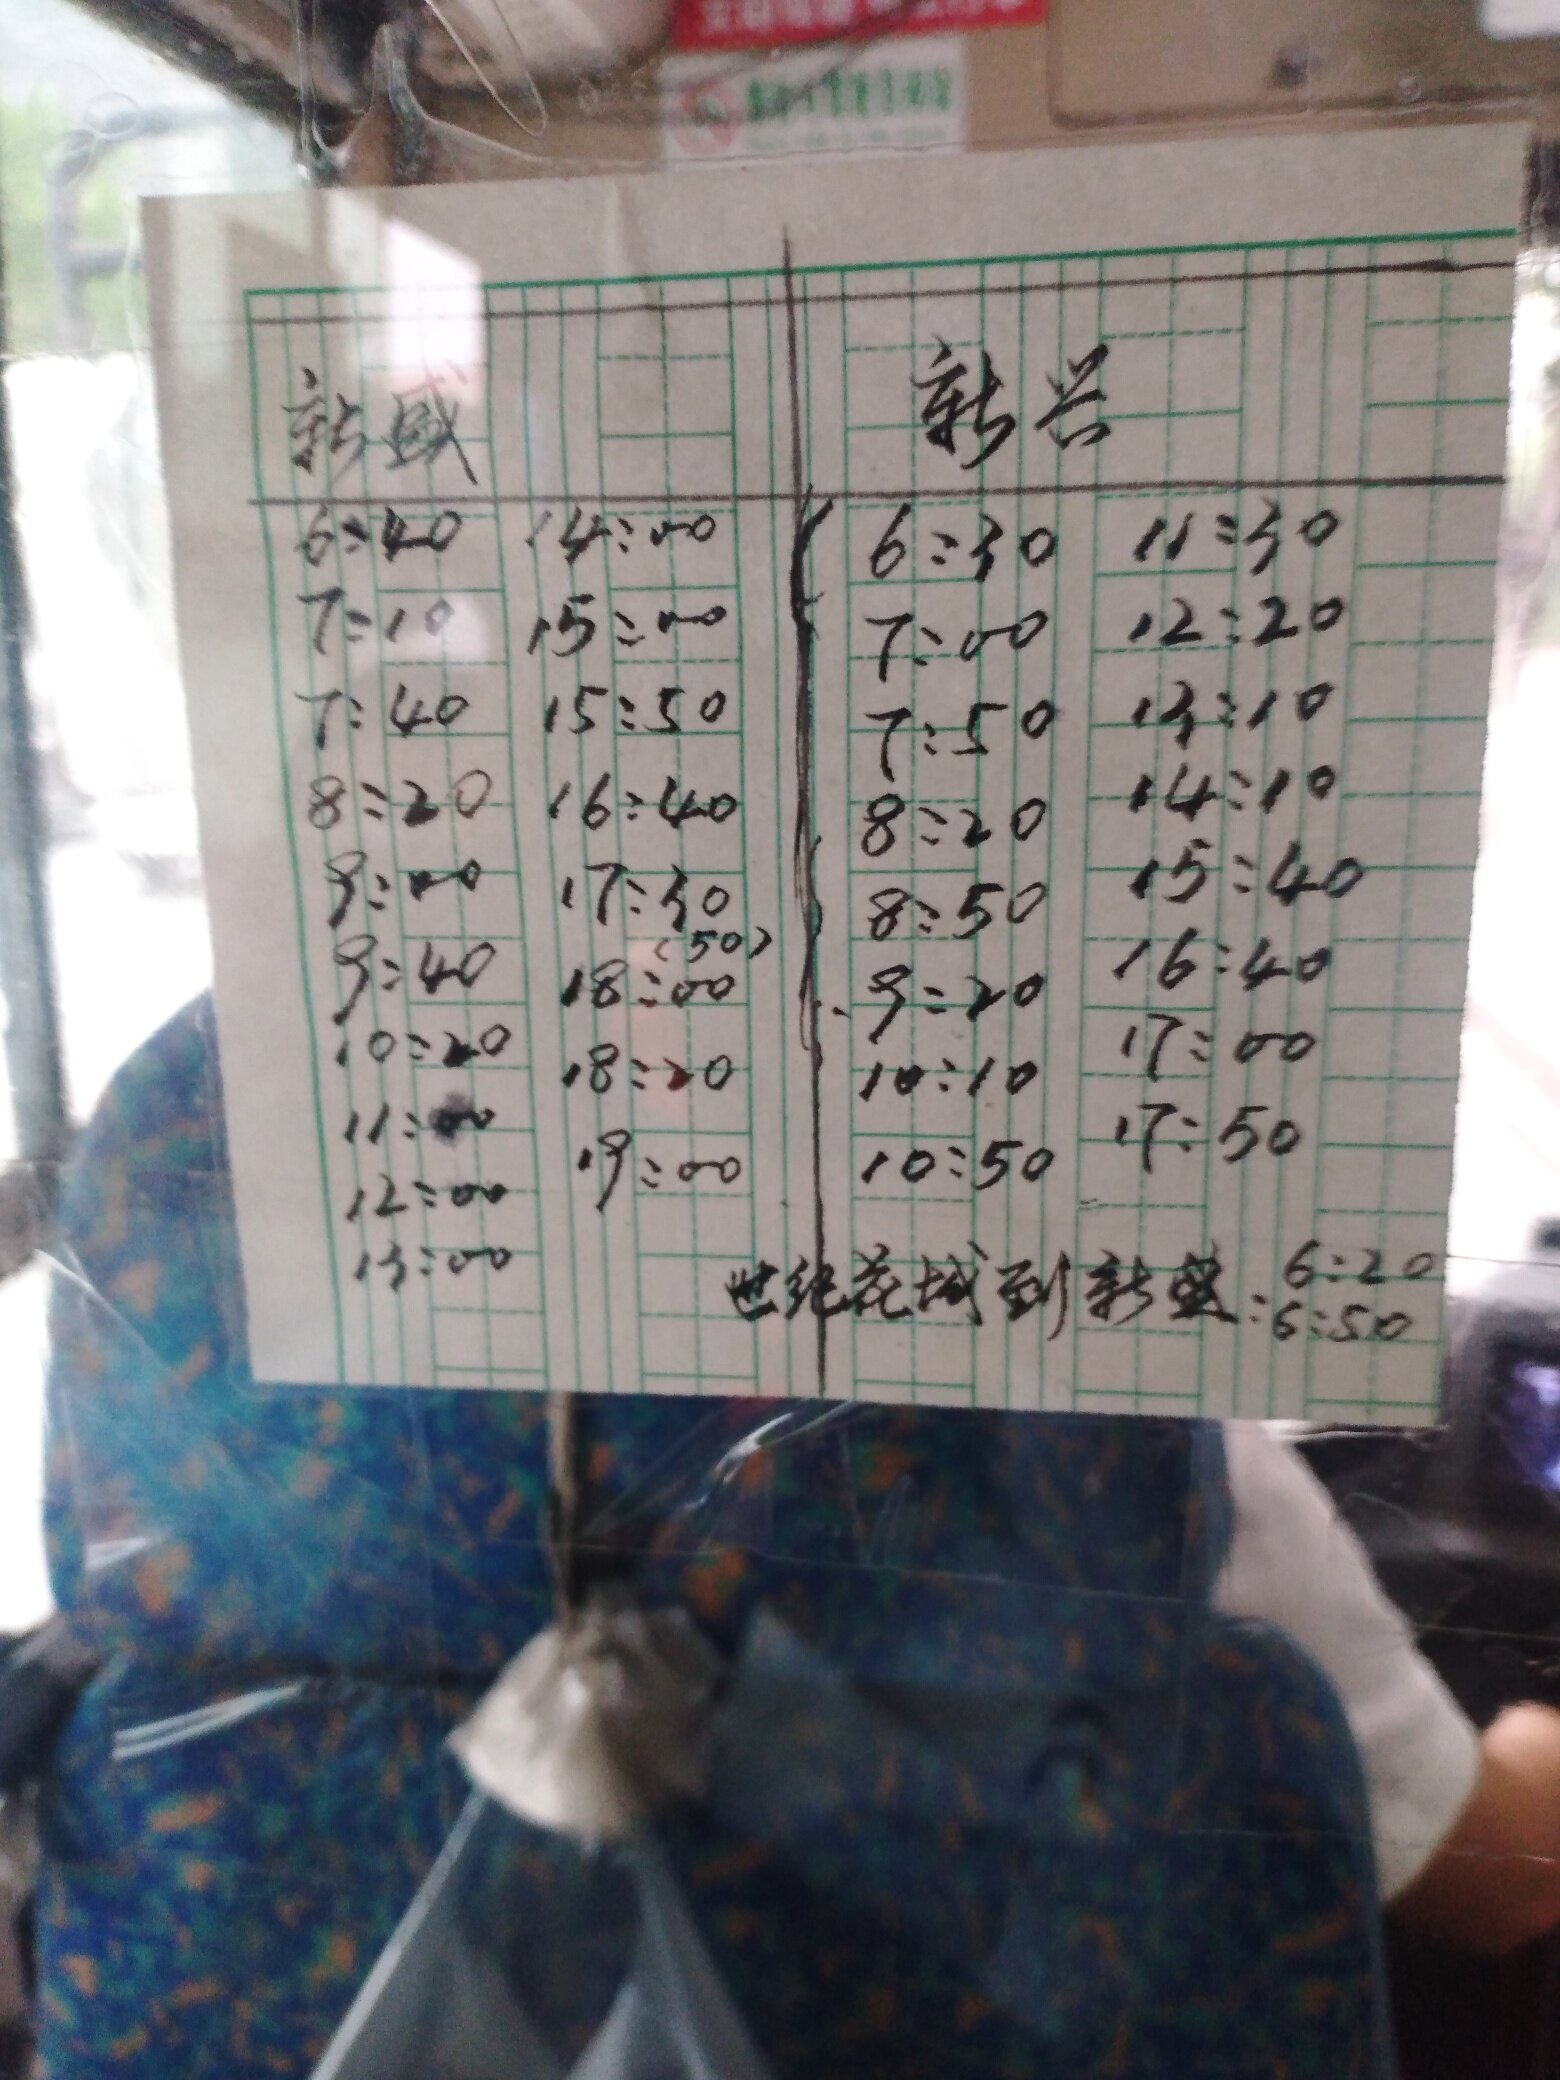 新盛
6:40
7:10
7:40
8:20
9:00
9:40
10:20
11:00
12:00
13:00
14:00
15:00
15:50
16:40
17:30
(50)
18:00
18:20
19:00
新兴
6:30
7:00
7:50
8:20
8:50
9:20
10:10
10:50
11:30
12:20
13:10
14:10
15:40
16:40
17:00
17:50
世纪花城到新盛:6:20
6:50